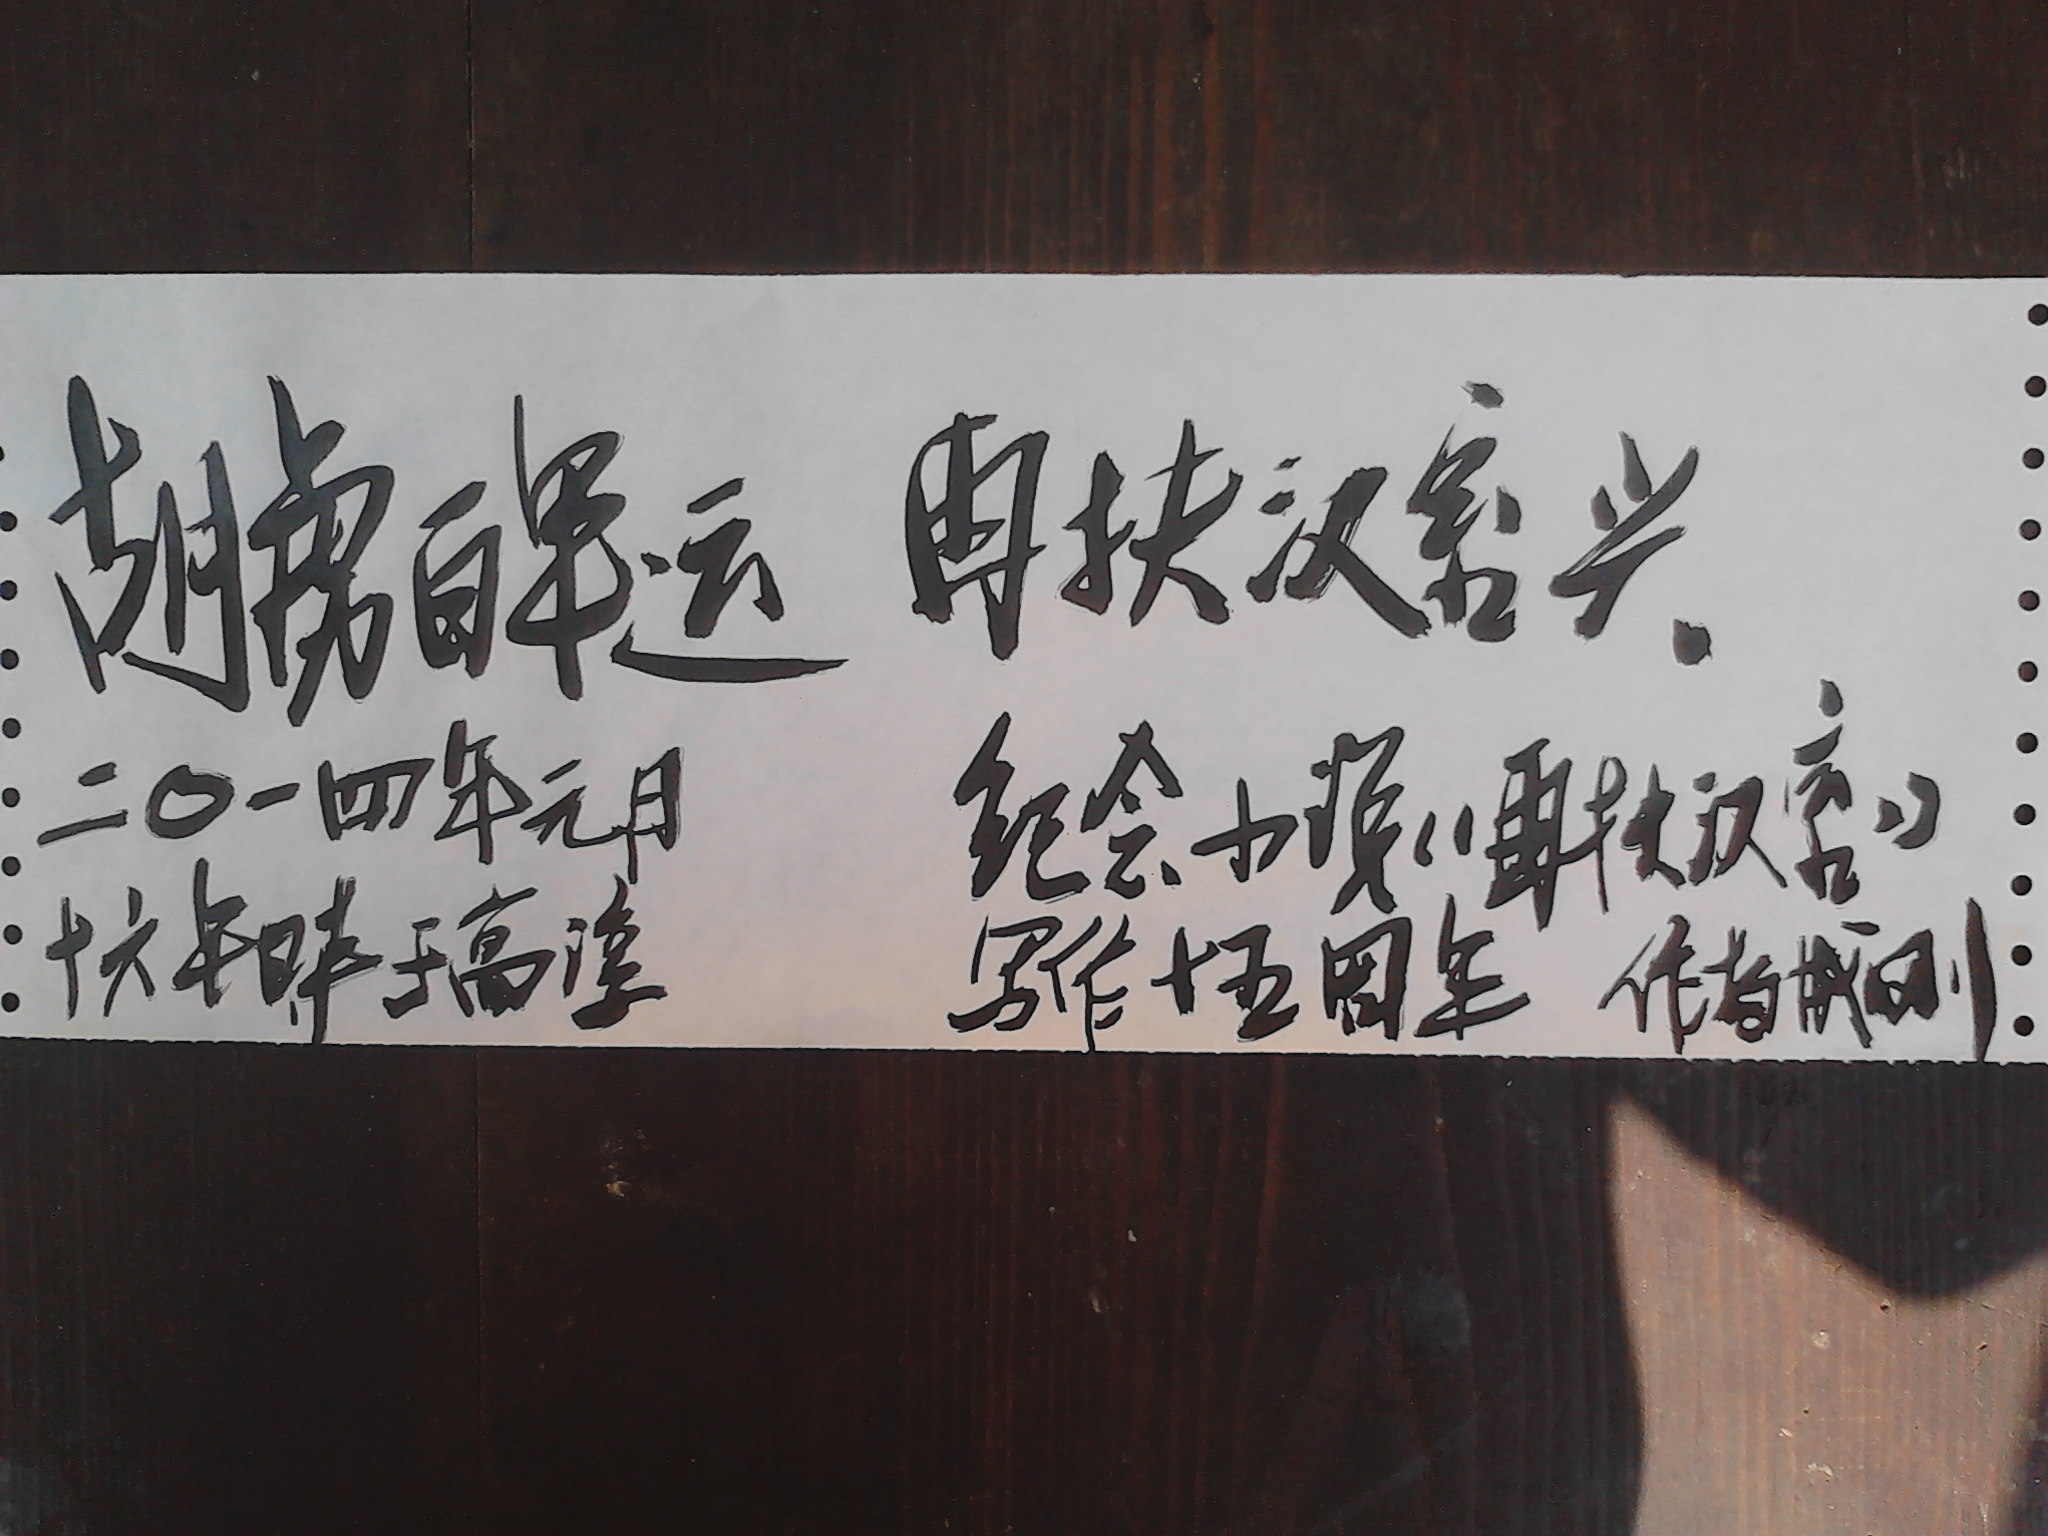 胡虏百年运 再扶汉室兴.
二〇一四年元月
十六年日于高淳
纪念小说《再扶汉室》
写作十五周年 作者成刚